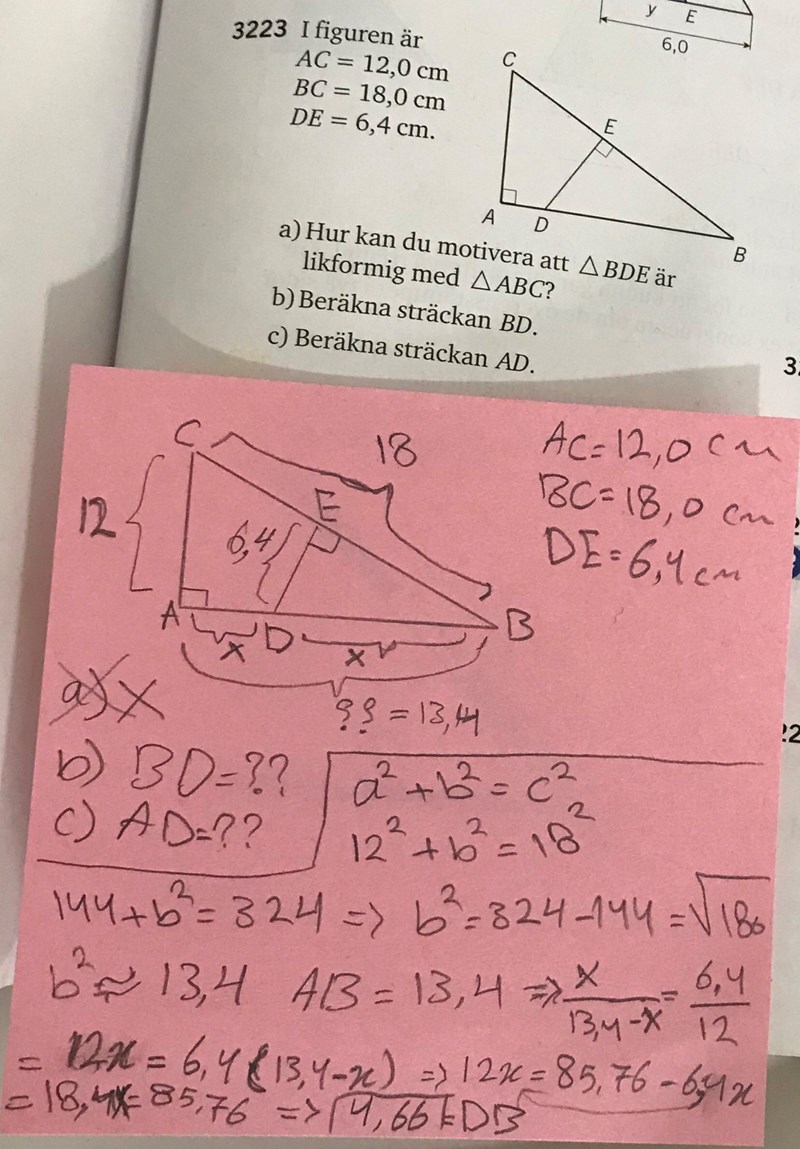 y E
6,0
3223 I figuren är
AC = 12,0 cm
BC = 18,0 cm
DE = 6,4 cm.
C
E
A
D
B
a) Hur kan du motivera att △BDE är
likformig med △ABC?
b) Beräkna sträckan BD.
c) Beräkna sträckan AD.
C
18
AC=12,0 cm
BC=18,0 cm
DE=6,4 cm
12
6,4
E
A
D
B
x
x
?? = 13,4
a) x
b) BD=??
c) AD=??
a²+b²=c²
12²+b²=18²
144+b²=324 => b²=324-144=√180
b²≈13,4 AB=13,4 => x/(13,4-x)=6,4/12
= 12x=6,4(13,4-x) => 12x=85,76-6,4x
= 18,4x=85,76 => 4,66=DB